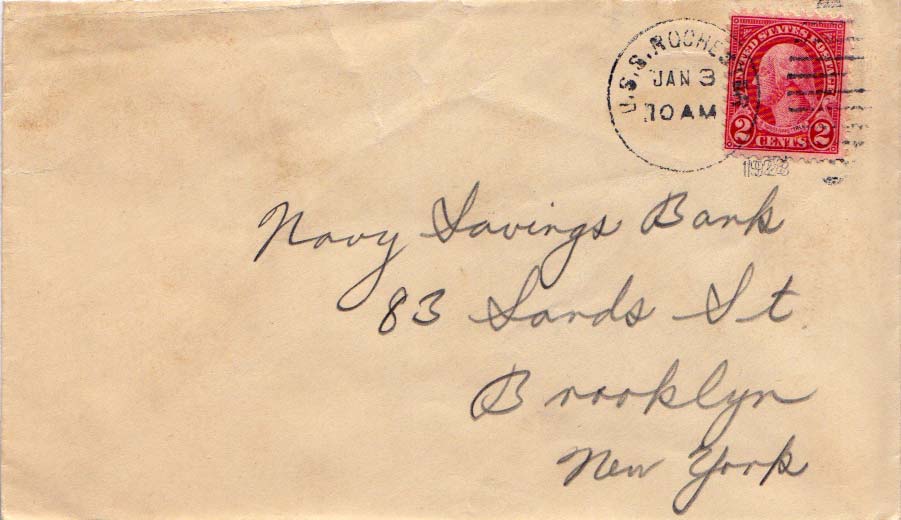 U.S.S. ROCHES
JAN 3
10 AM
UNITED STATES POSTAGE
2 CENTS 2
Navy Savings Bank
83 Sands St
Brooklyn
New York